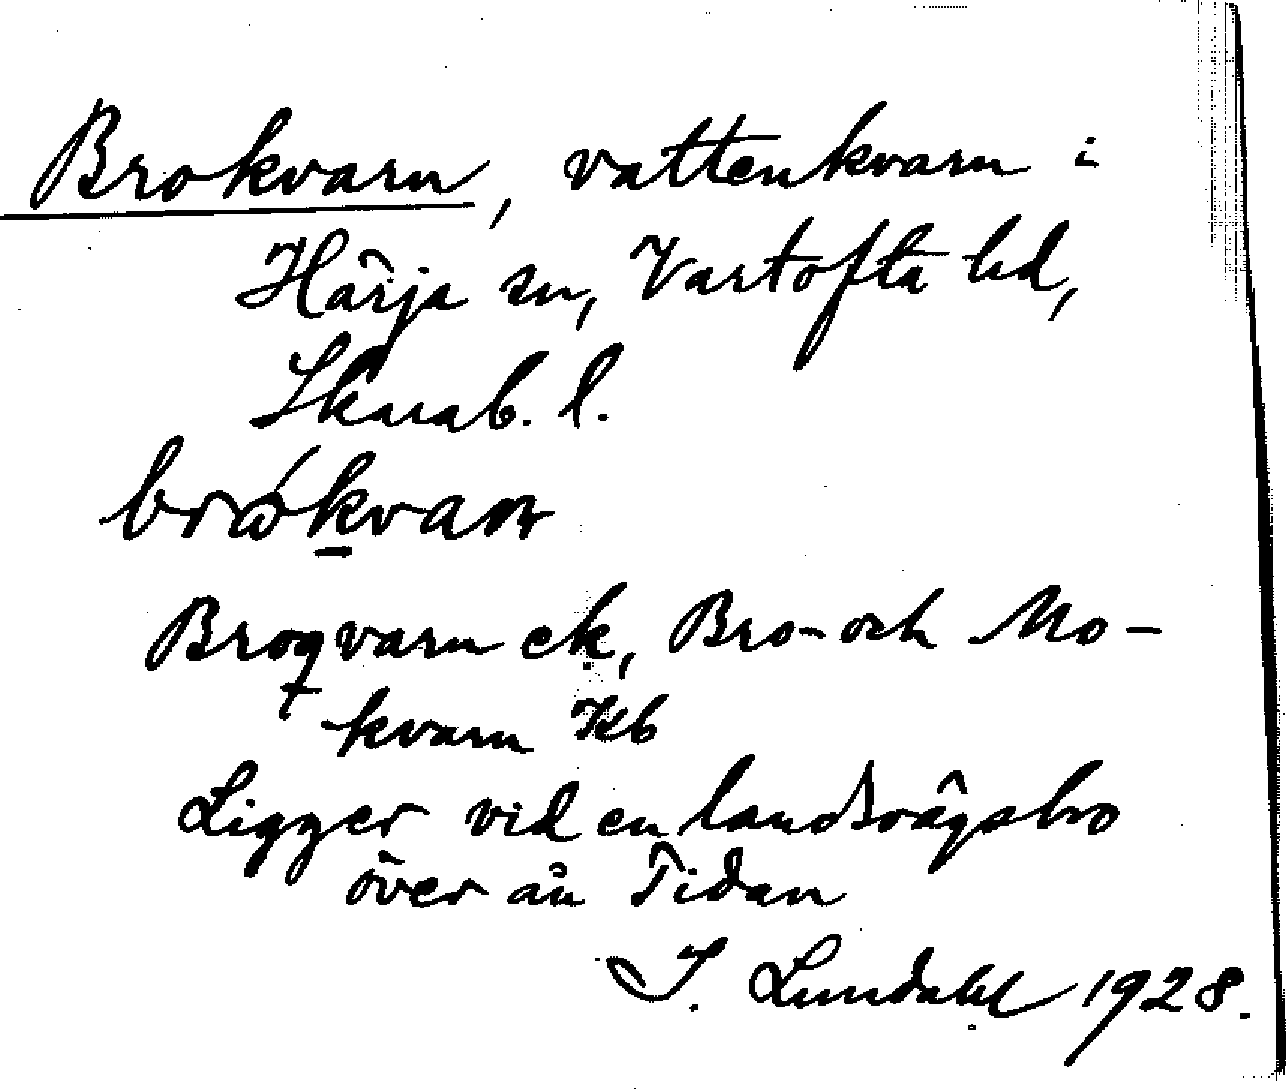 Brokvarn, vattenkvarn i
Härja sn, Vartofta hd,
Skarab. l.
Broqvarn ek, Bro- och Mo-
kvarn Kb
Ligger vid en landsvägsbro
över ån Tidan
I. Lundahl 1928.